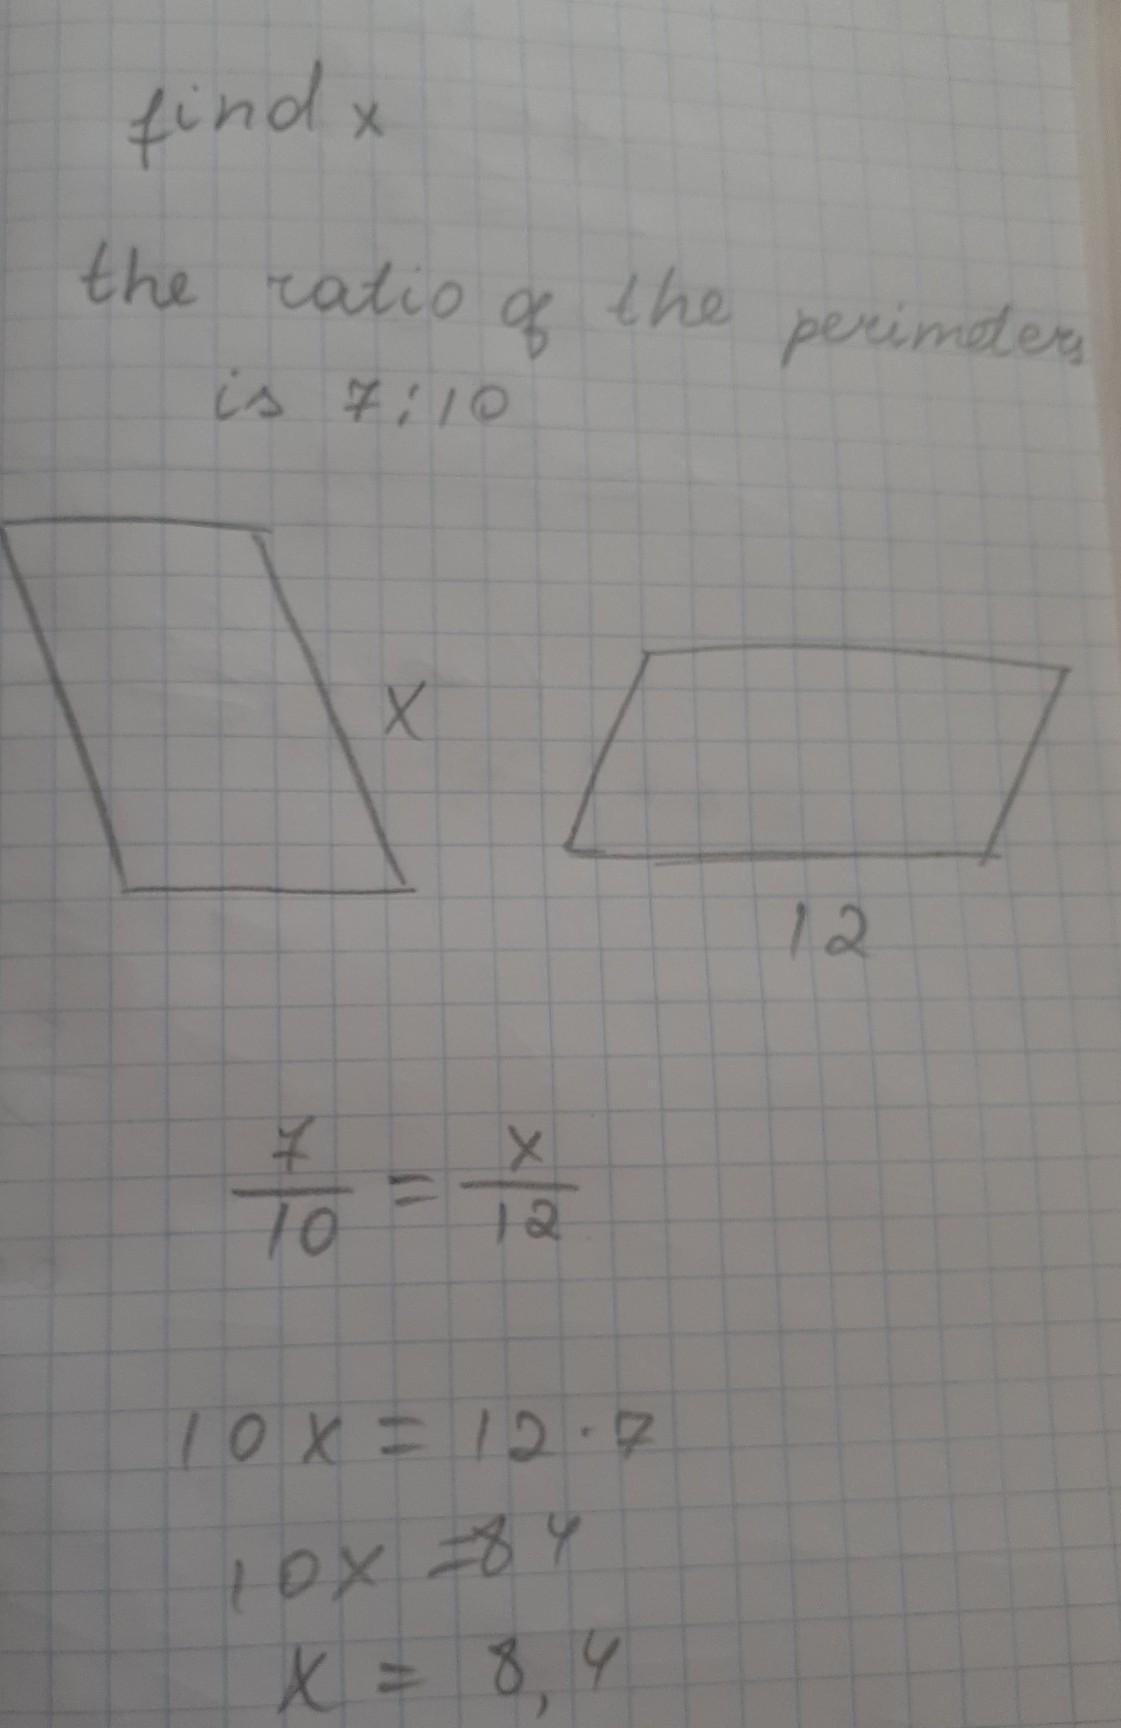 find x
the ratio of the perimeters
is 7:10
x
12
7/10 = x/12
10x = 12 · 7
10x = 84
x = 8,4